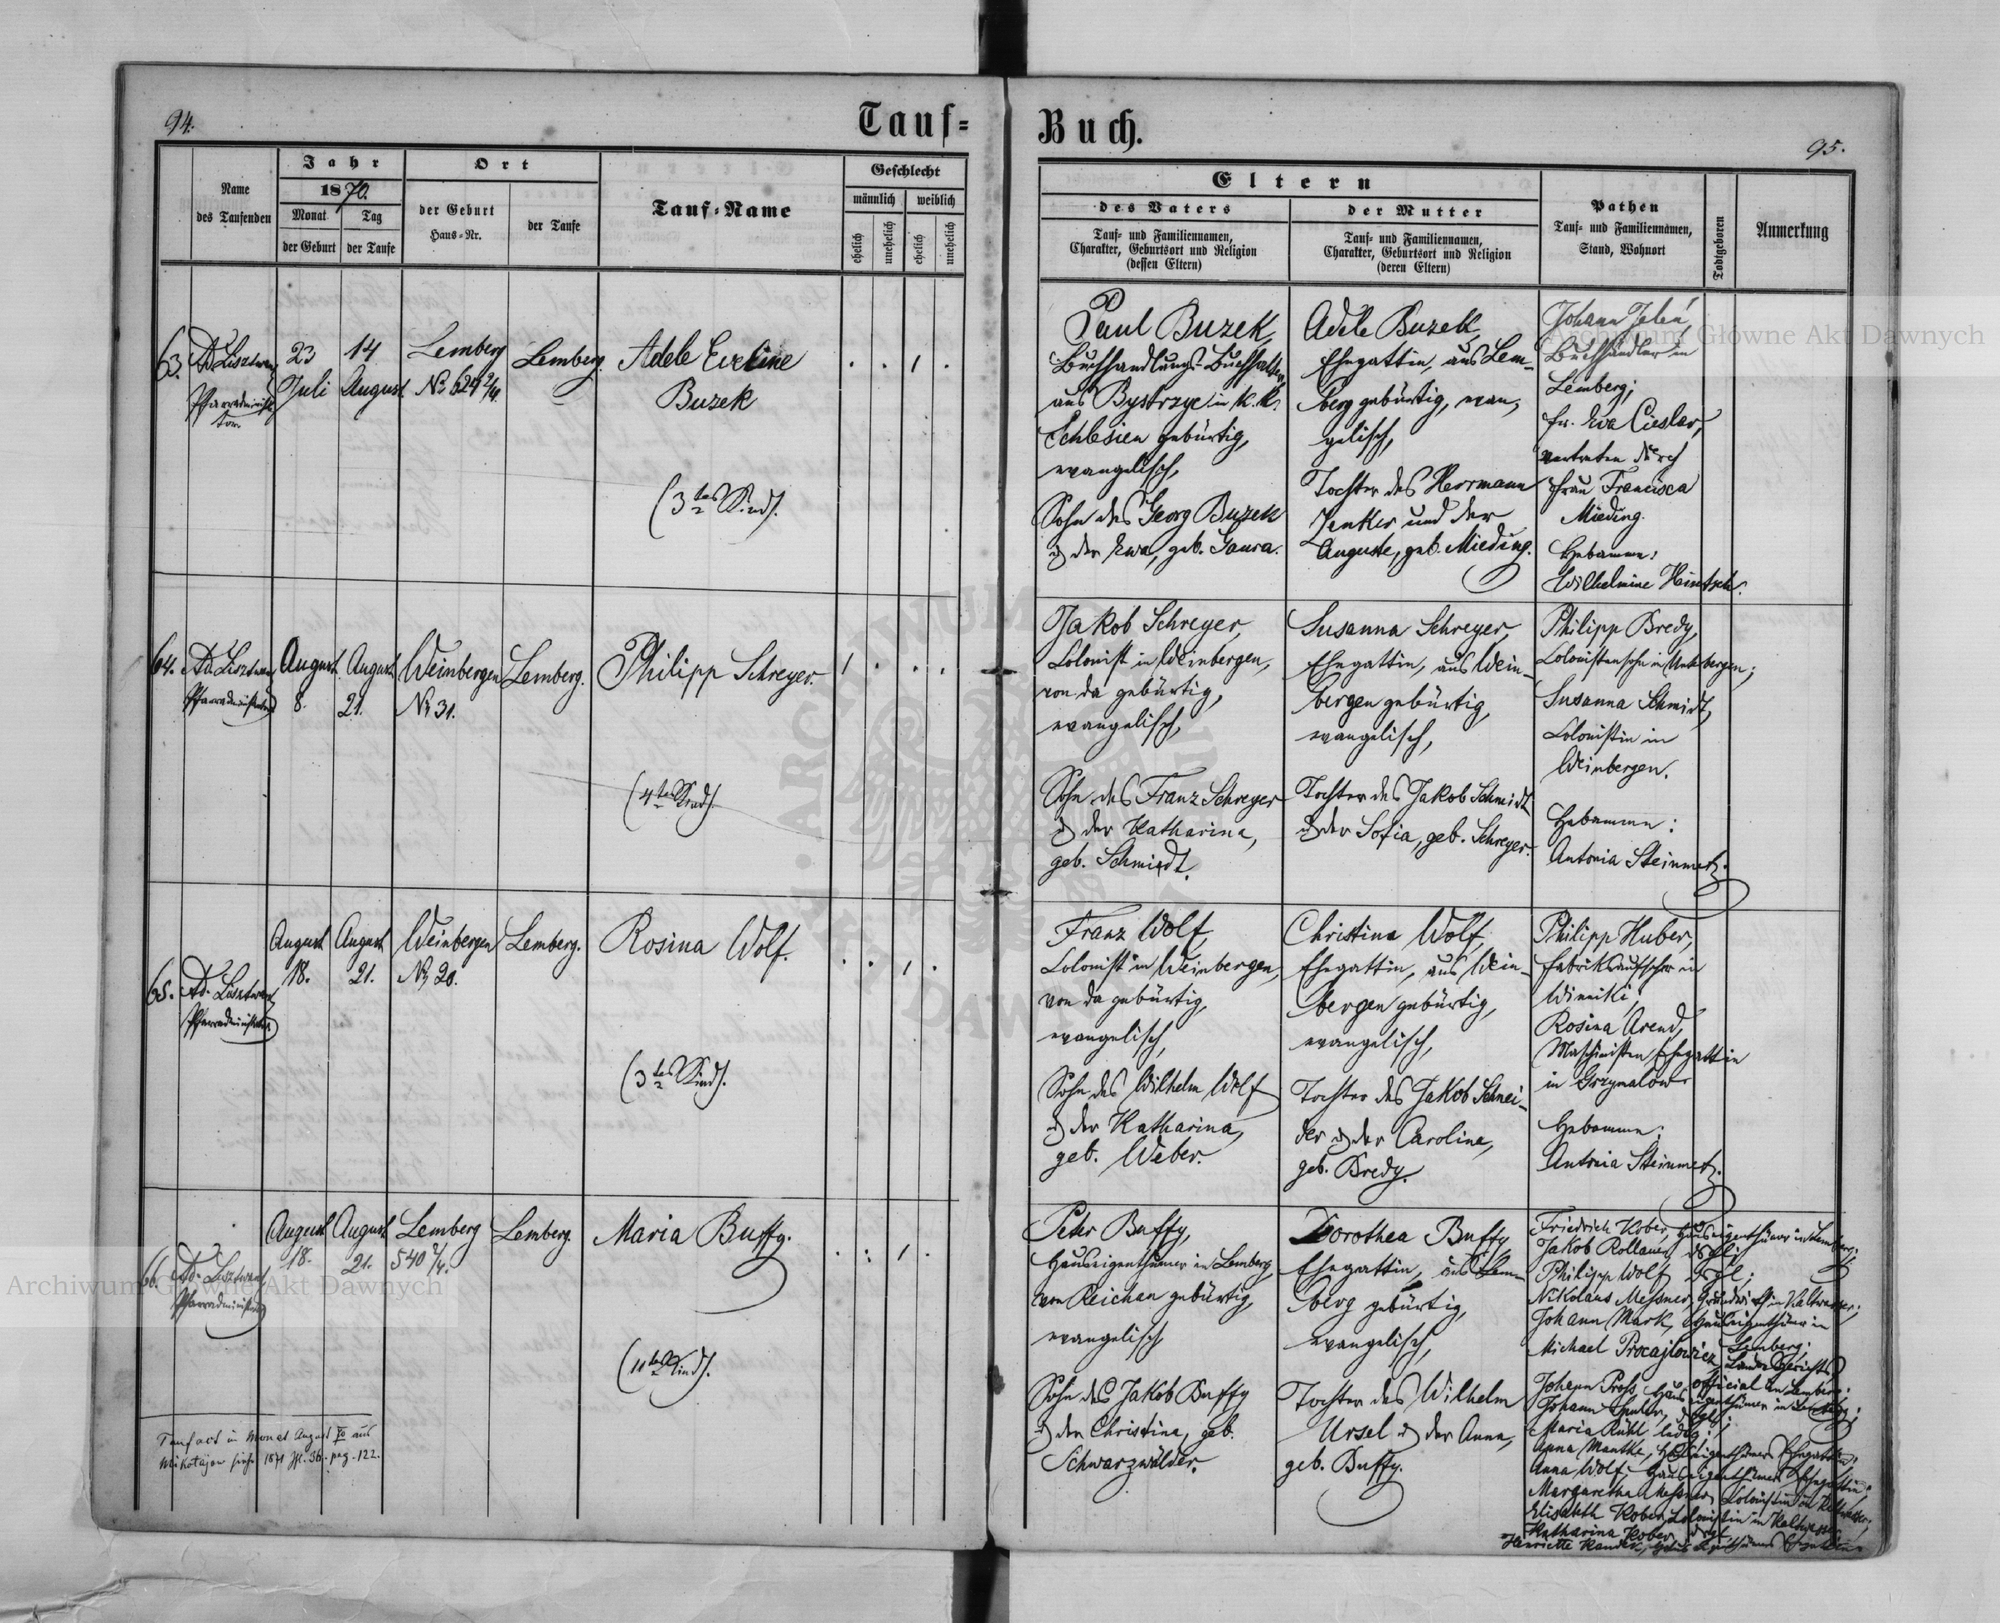 94.
Tauf=
Buch.
95.
Name
des Taufenden
Jahr
1870.
Monat
der Geburt
Tag
der Taufe
Ort
der Geburt
Haus=Nr.
der Taufe
Tauf=Name
Geschlecht
männlich
weiblich
ehelich
unehelich
ehelich
unehelich
Eltern
des Vaters
Tauf= und Familiennamen,
Charakter, Geburtsort und Religion
(dessen Eltern)
der Mutter
Tauf= und Familiennamen,
Charakter, Geburtsort und Religion
(deren Eltern)
Pathen
Tauf= und Familiennamen,
Stand, Wohnort
Todtgeboren
Anmerkung
63.
Pfarradminist
tor.
23
Juli
14
August
Lemberg
No 624 2/4.
Lemberg.
Adele Eveline
Buzek
(3tes Kind).
. . 1 .
Paul Buzek,
Buchhandlungs=Buchhalter,
aus Bystrzyc in k.k.
Schlesien gebürtig,
evangelisch,
Sohn des Georg Buzek
u der Ewa, geb. Gaura.
Adele Buzek
Ehegattin, aus Lem-
berg gebürtig, evan-
gelisch,
Tochter des Herrmann
Jenker und der
Auguste, geb. Mieding.
Johann
Buchhändler in
Lemberg;
Fr. Ewa Cieslar,
vertreten durch
Frau Francisca
Mieding.
Hebamme:
Wilhelmine Hintsch.
64.
Pfarradministrator
August
8.
August
21.
Weinbergen
No 31.
Lemberg.
Philipp Schreyer.
(4tes Kind).
1 . . .
Jakob Schreyer,
Colonist in Weinbergen,
von da gebürtig,
evangelisch,
Sohn des Franz Schreyer
u der Katharina,
geb. Schmidt.
Susanna Schreyer,
Ehegattin, aus Wein-
bergen gebürtig,
evangelisch,
Tochter des Jakob Schmidt
u der Sofia, geb. Schreyer.
Philipp Bredy,
Colonistensohn in Unterbergen;
Susanna Schmidt,
Colonistin in
Weinbergen.
Hebamme:
Antonia Steinmetz.
65.
Pfarradministrator
August
18.
August
21.
Weinbergen
No 20.
Lemberg.
Rosina Wolf.
(3tes Kind).
. . 1 .
Franz Wolf,
Colonist in Weinbergen,
von da gebürtig,
evangelisch,
Sohn des Wilhelm Wolf
u der Katharina,
geb. Weber.
Christina Wolf,
Ehegattin, aus Wein-
bergen gebürtig,
evangelisch,
Tochter des Jakob Schnei-
der u der Carolina,
geb. Bredy.
Philipp Huber,
Fabriksaufseher in
Winniki;
Rosina Arend,
Maschinisten Ehegattin
in Grzymalow
Hebamme:
Antonia Steinmetz.
66.
Pfarradministrator
August
18.
August
21.
Lemberg
540 2/4.
Lemberg.
Maria Buffy.
(11tes Kind).
. : 1 .
Peter Buffy,
Hauseigenthümer in Lemberg,
von Reichau gebürtig,
evangelisch,
Sohn des Jakob Buffy
u der Christina, geb.
Schwarzwälder.
Dorothea Buffy
Ehegattin, aus Lem-
berg gebürtig,
evangelisch,
Tochter des Wilhelm
Ursel u der Anna,
geb. Buffy.
Friedrich Kober, Hauseigenthümer in Lemberg;
Jakob Rollauer, dsgl;
Philipp Wolf dsgl;
Nikolaus Messner, Grundwirth in Kaltwasser;
Johann Mark, Hauseigenthümer in
Lemberg;
Michael Procajlowicz, Landesgerichts
official in Lemberg;
Johann Pross, Hauseigenthümer in Lemberg;
Johann dsgl;
Maria Rühl ledig;
Anna Manthe, Hauseigenthümers Ehegattin;
Anna Wolf, Hauseigenthümers Ehegattin;
Margaretha Messner, Colonistin in Kaltwasser;
Elisabeth Kober, Colonistin in Kaltwasser,
Katharina Kober, dsgl
Henriette Hauseigenthümers Ehegattin
Taufact im Monat August 70 aus
Mikolajow siehe 1871 36. pag. 122.
Archiwum Główne Akt Dawnych
Archiwum Główne Akt Dawnych